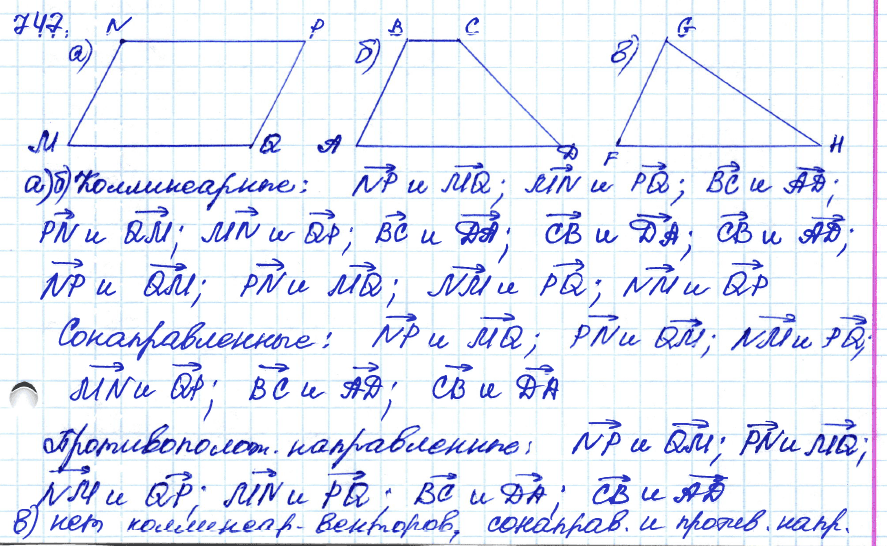 747.
а) N P M Q
б) B C A D
в) G F H
а)б) Коллинеарные: NP и MQ; MN и PQ; BC и AD;
PN и QM; MN и QP; BC и DA; CB и DA; CB и AD;
NP и QM; PN и MQ; NM и PQ; NM и QP
Сонаправленные: NP и MQ; PN и QM; NM и PQ;
MN и QP; BC и AD; CB и DA
Противополож. направленные: NP и QM; PN и MQ;
NM и QP; MN и PQ; BC и DA; CB и AD
в) нет коллинеар. векторов, сонаправ. и против. напр.